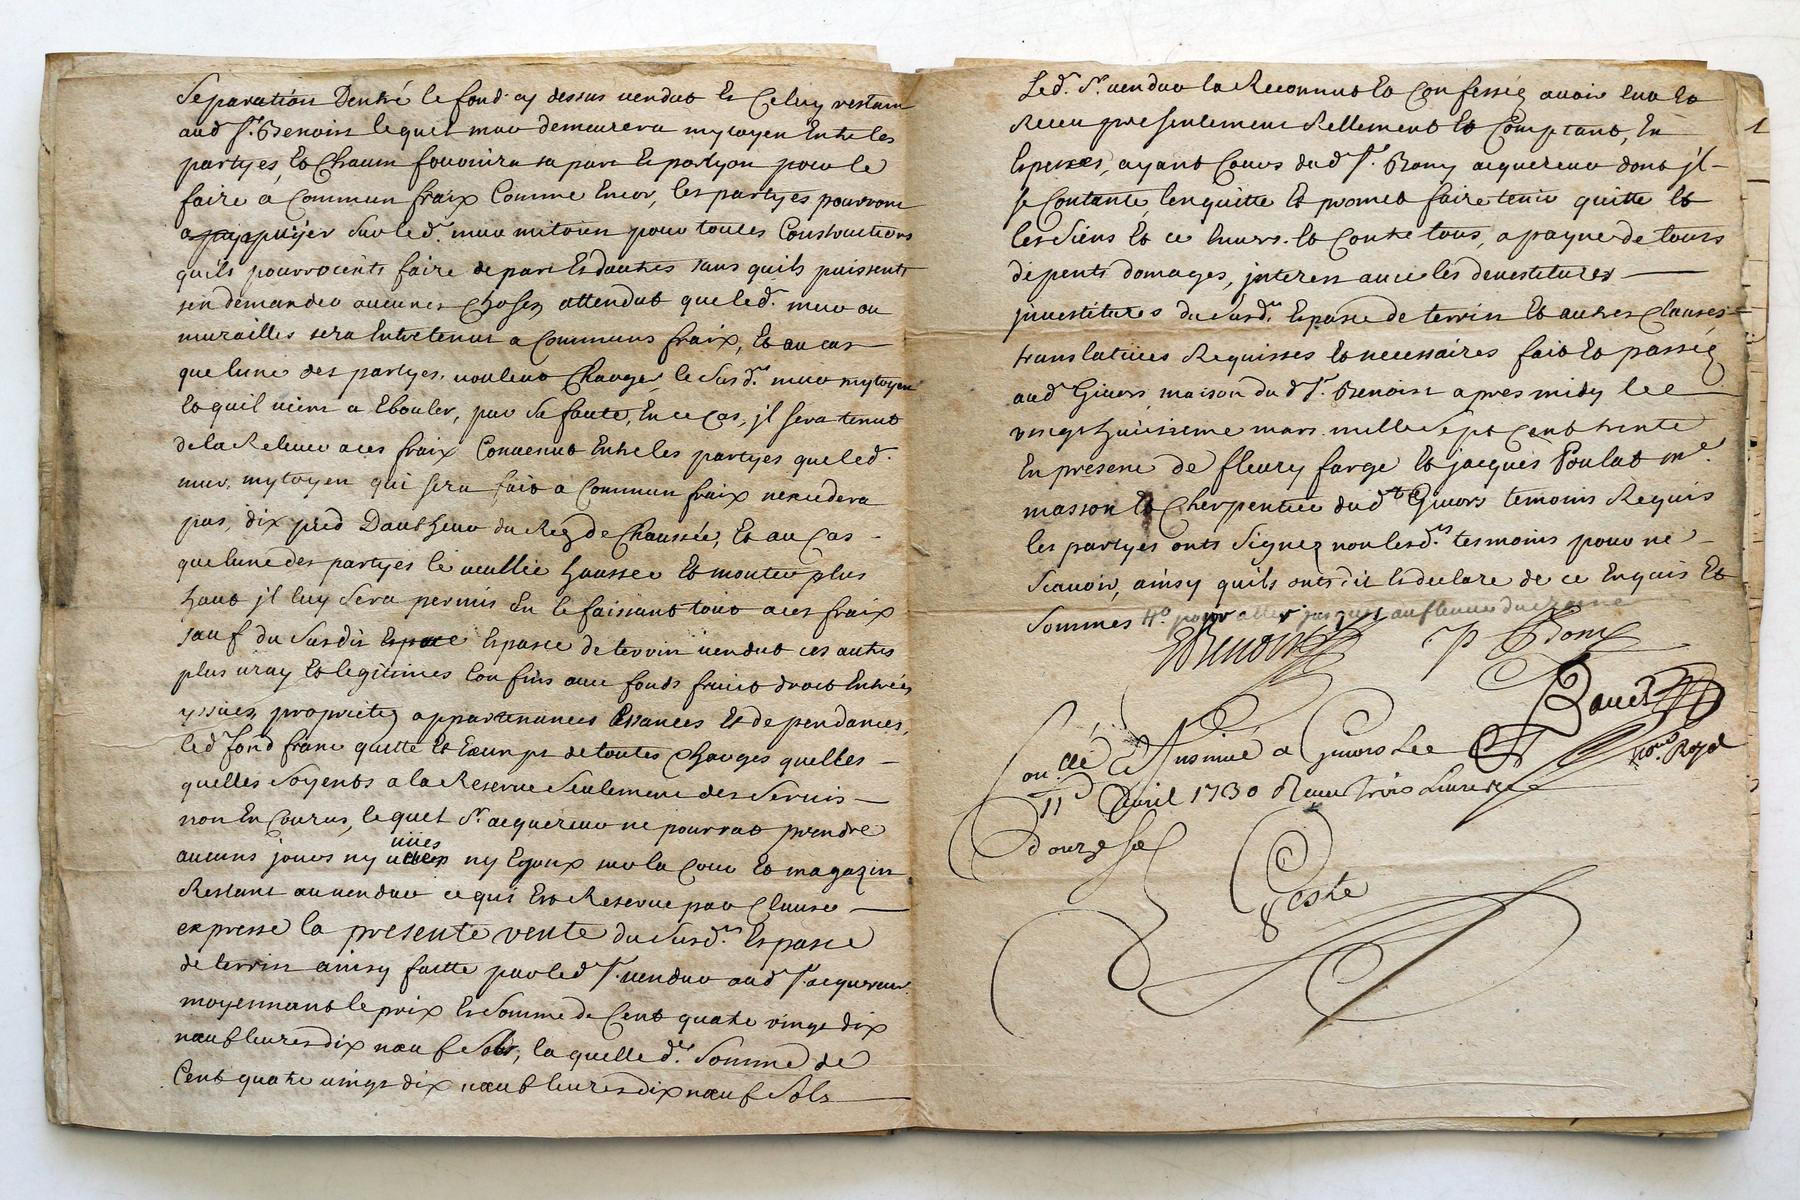 Separation Dentré le fond cy dessus uendut Et Celuy restant
aud Sr. Benoist lequel mur demeurera mytoyen Entre les
partyes, Et Chacun fournira sa part Et portyon pour le
faire a Commun fraix Comme Encor, les partyes pourront
apuyer Sur led. mur mitoien pour toutes Constructions
quils pourroients faire de part Et dautres sans quils puissents
sen demander aucunes Choses, attendut que led. mur ou
murailles sera Entretenut a Communs fraix, Et au cas
que lune des partyes, uoulent Charger le Susd. mur mytoyen
Et quil uient a Ebouler, par Sa faute, En ce Cas, jl sera tenut
de la Releuer a ces fraix Conuenut Entre les partyes que led.
mur, mytoyen qui sera fait a Commun fraix nexcedera
pas, dix pied Dautheur du Rez de Chaussée, Et au Cas
que lune des partyes le ueullie hausser Et monter plus
haut jl luy Sera permis En le faissant tout a ces fraix
sauf du Susdit Espace Espasse de terrin uendut ces autres
plus uray Et legitimes Confins auec fonds fruits droits Entrées
yssües, proprietez appartenances Aisances Et dependances,
led. fond franc quitte Et Exempt de toutes Charges quelles
quelles Soyents a la Reserue Seulement des Seruis
non En Courus, lequel Sr. acquereur ne pourrat prendre
uües
aucuns jours ny ny Egoux sur la Cour Et magazin
Restant au uendeur ce qui Est Reserue par Clause
expresse la presente vente du Susd. Espasse
de terrin ainsy faitte par led Sr. uendeur aud Sr. acquereur
moyennant le prix Et Somme de Cent quatre vingt dix
neuf liures dix neuf Sols, la quelle de. Somme de
Cent quatre uingt dix neuf liures dix neuf Sols
Led. Sr. uendeur la Reconnut Et Confessée auoir Eue Et
Receu presentement Reellement Et Comptant, En
Espesses, ayant Cours dud Sr. Bony acquereur dont jl
se Contante, lenquitte Et promet faire tenir quitte Et
les Siens Et ce Enuers Et Contre tous, a payne de tous
dépents domages, jnterest auec les deuestitures
jnuestitures du Susd. Espasse de terrin Et autres Clauses
translatiues Requisses Et necessaires fait Et passée
aud Giuors, maison dud Sr. Benoist apres midy lee
vingt huitieme mars mille Sept Cent trente
En presence de fleury farge Et jacques Poulat me.
masson Et Cherpentier dud Giuors temoins Requis
les partyes onts Signez non lesd. tesmoins pour ne
Scauoir, ainsy quils onts dit Et declare de ce Enquis Et
Sommes pour aller jusques au fleuue du Rosne
EBenoist P Bony
Bouet
no.re Royal
Conllé Et Insinué a Giuors Lee
11 Avril 1730 Receu trois Liures
douze S.
Coste
1